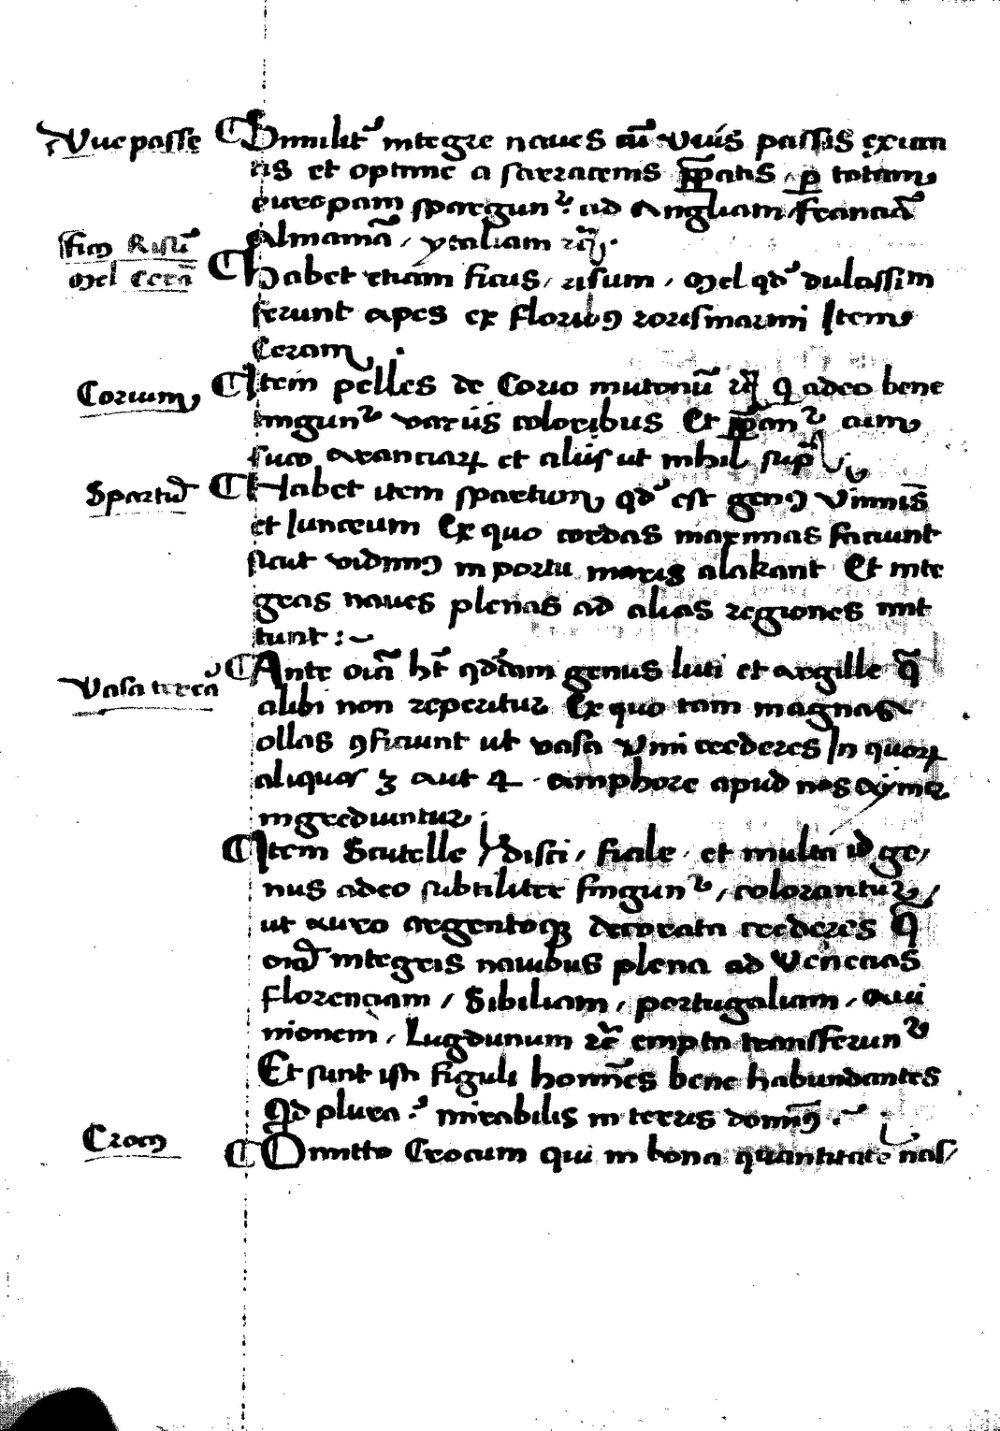 Vue passe
Similit᷒ integre naues cū vuis passis exican
tis et optime a sarracenis p̄patis, ꝑ totam
europam spargun᷒ ad Angliam, Franciā
Almaniā, ytaliam ⁊c̄.
Ficꝯ Risū
Mel Cera
Habet etiam ficus, risum, Mel qd᷒ dulcissim
ferunt apes ex floribꝯ rorismarini Item
Ceram.
Corium
Item pelles de Corio mutonū ⁊c̄ q̄ adeo bene
tingun᷒ variis coloribus Et p̄pan᷒ cum
suco aranciaꝝ et aliis ut nihil sup̄
Spartū
Habet item spartum qd᷒ est genꝯ viminis
et Iunceum Ex quo cordas maximas faciunt
sicut vidimꝯ in portu maris alakant Et inte
gras naues plenas ad alias regiones mit
tunt :~
Vasa terrea
Ante oīa ht̄ qd̄dam genus luti et argille q̄
alibi non reperitur Ex quo tam magnas
ollas ꝯficiunt ut vasa vini crederes In quoꝝ
aliquas 3 aut 4 amphore apud nos aymer
ingrediuntur.
Item Scutelle, disci, fiale, et multa id ge,
nus adeo subtiliter fingun᷒, colorantur,
ut auro argentoqꝫ decorata crederes q̄
oīa integris nauibus plena ad Venecias
florenciam, Sibiliam, portugaliam, Aui
nionem, Lugdunum ⁊c̄ empta transferun᷒
Et sunt isti figuli homines bene habundantes
Qd plura? mirabilis in terris dominꝯ.
Crocꝯ
Omitto Crocum qui in bona quantitate nas,